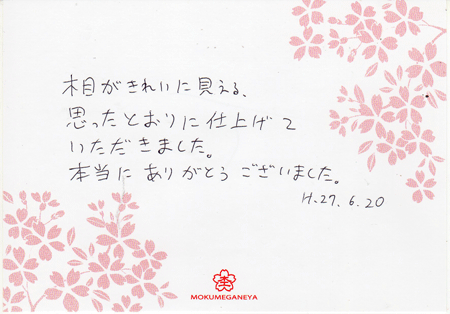 木目がきれいに見える、
思ったとおりに仕上げて
いただきました。
本当にありがとうございました。
H.27.6.20
杢
MOKUMEGANEYA